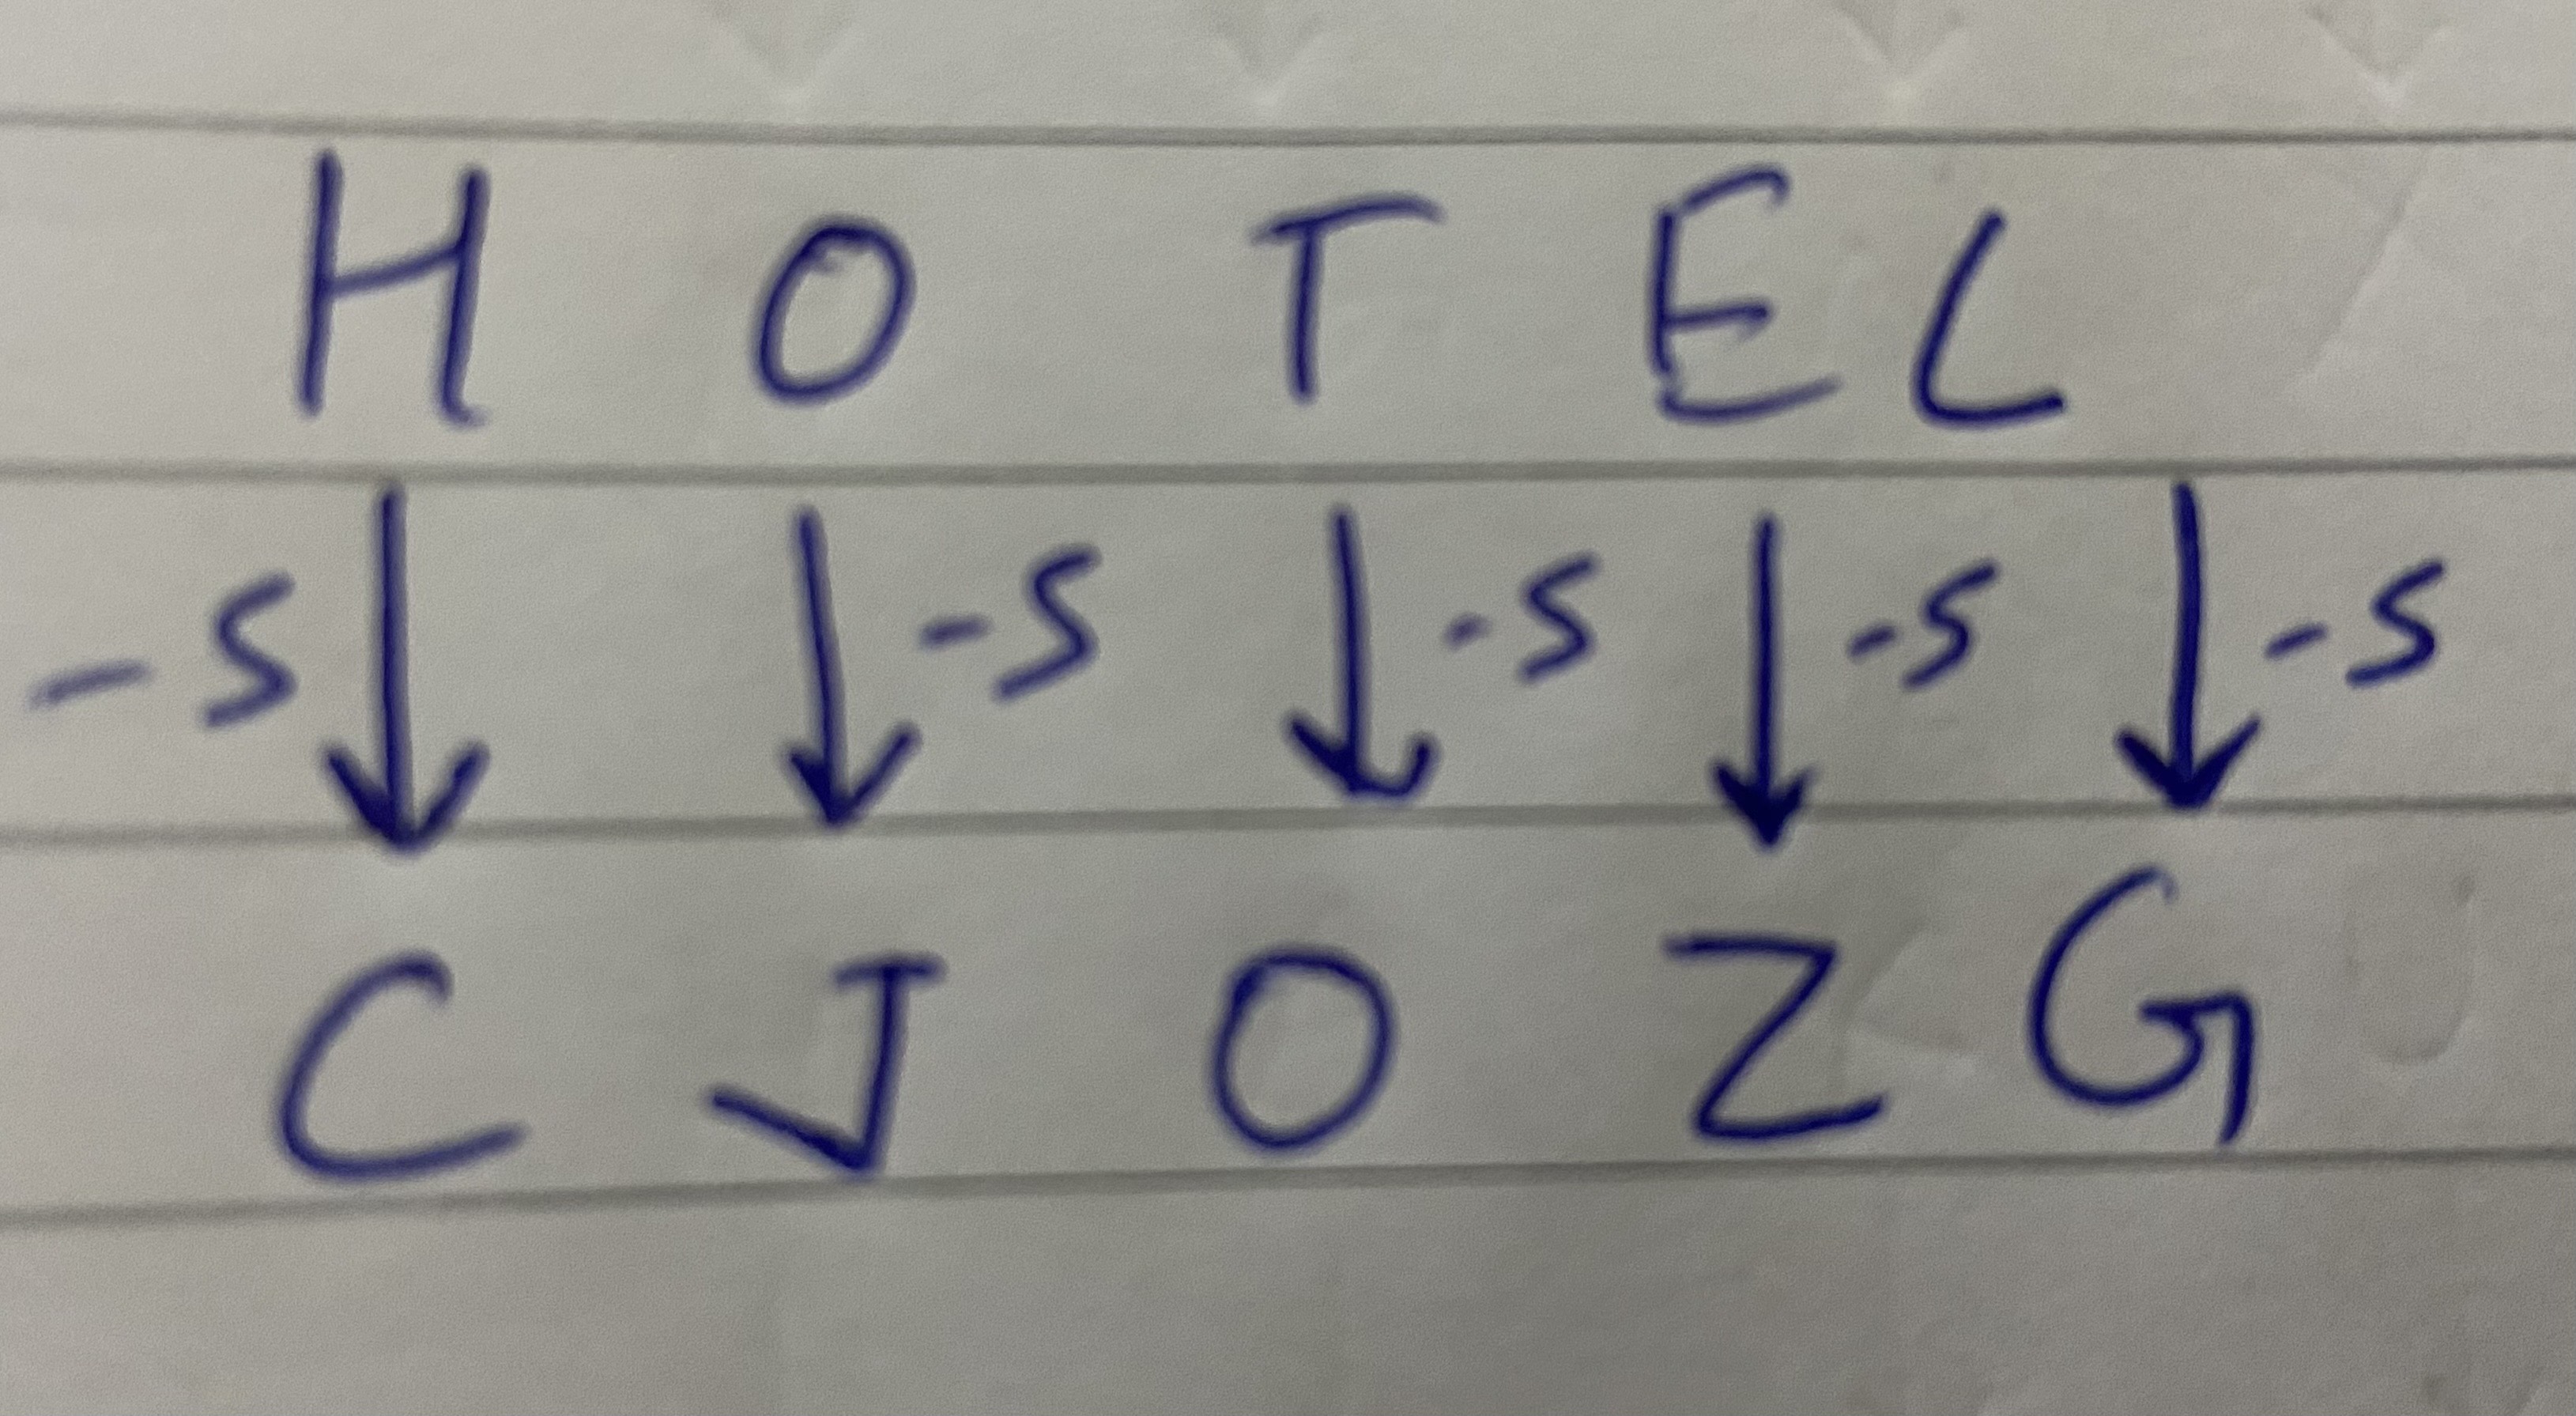 H O T E L
-5 ↓ ↓ -5 ↓ -5 ↓ -5 ↓ -5
C J O Z G